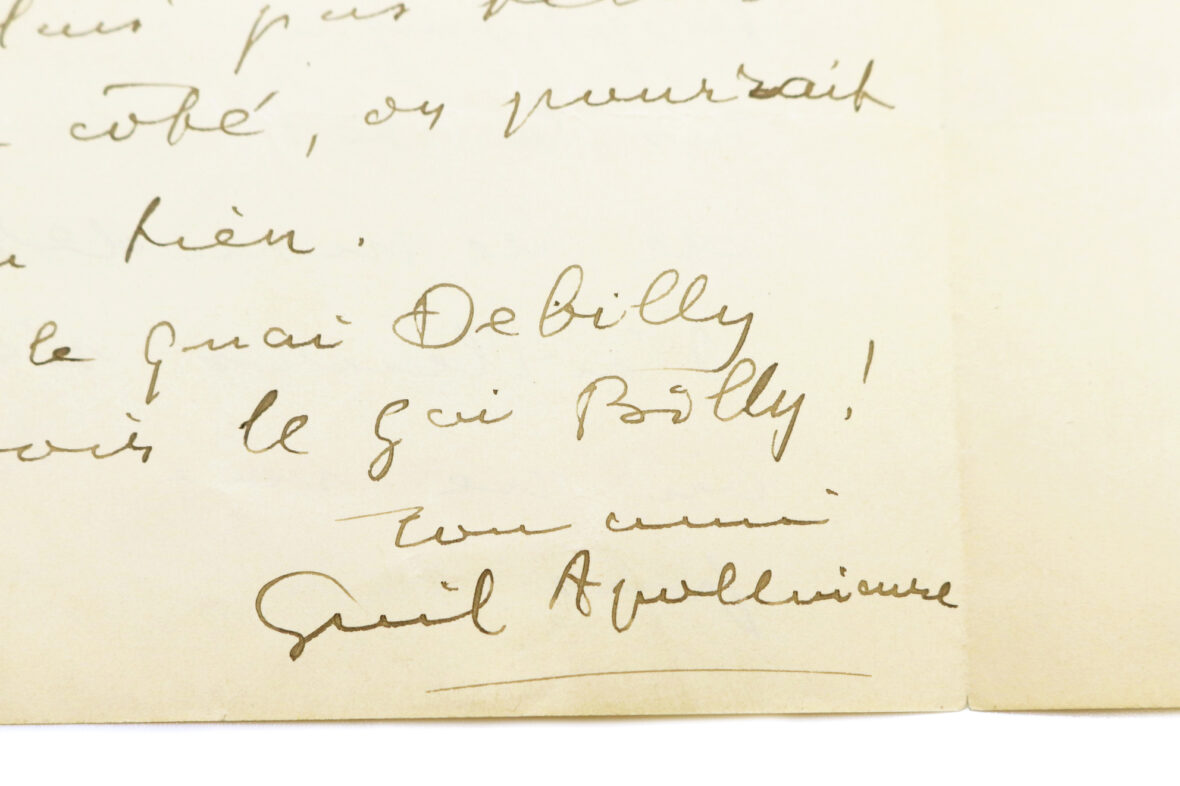 pas
côté, on pourrait
tien.
le quai Debilly
voir le gai Billy!
ton ami
Guil Apollinaire